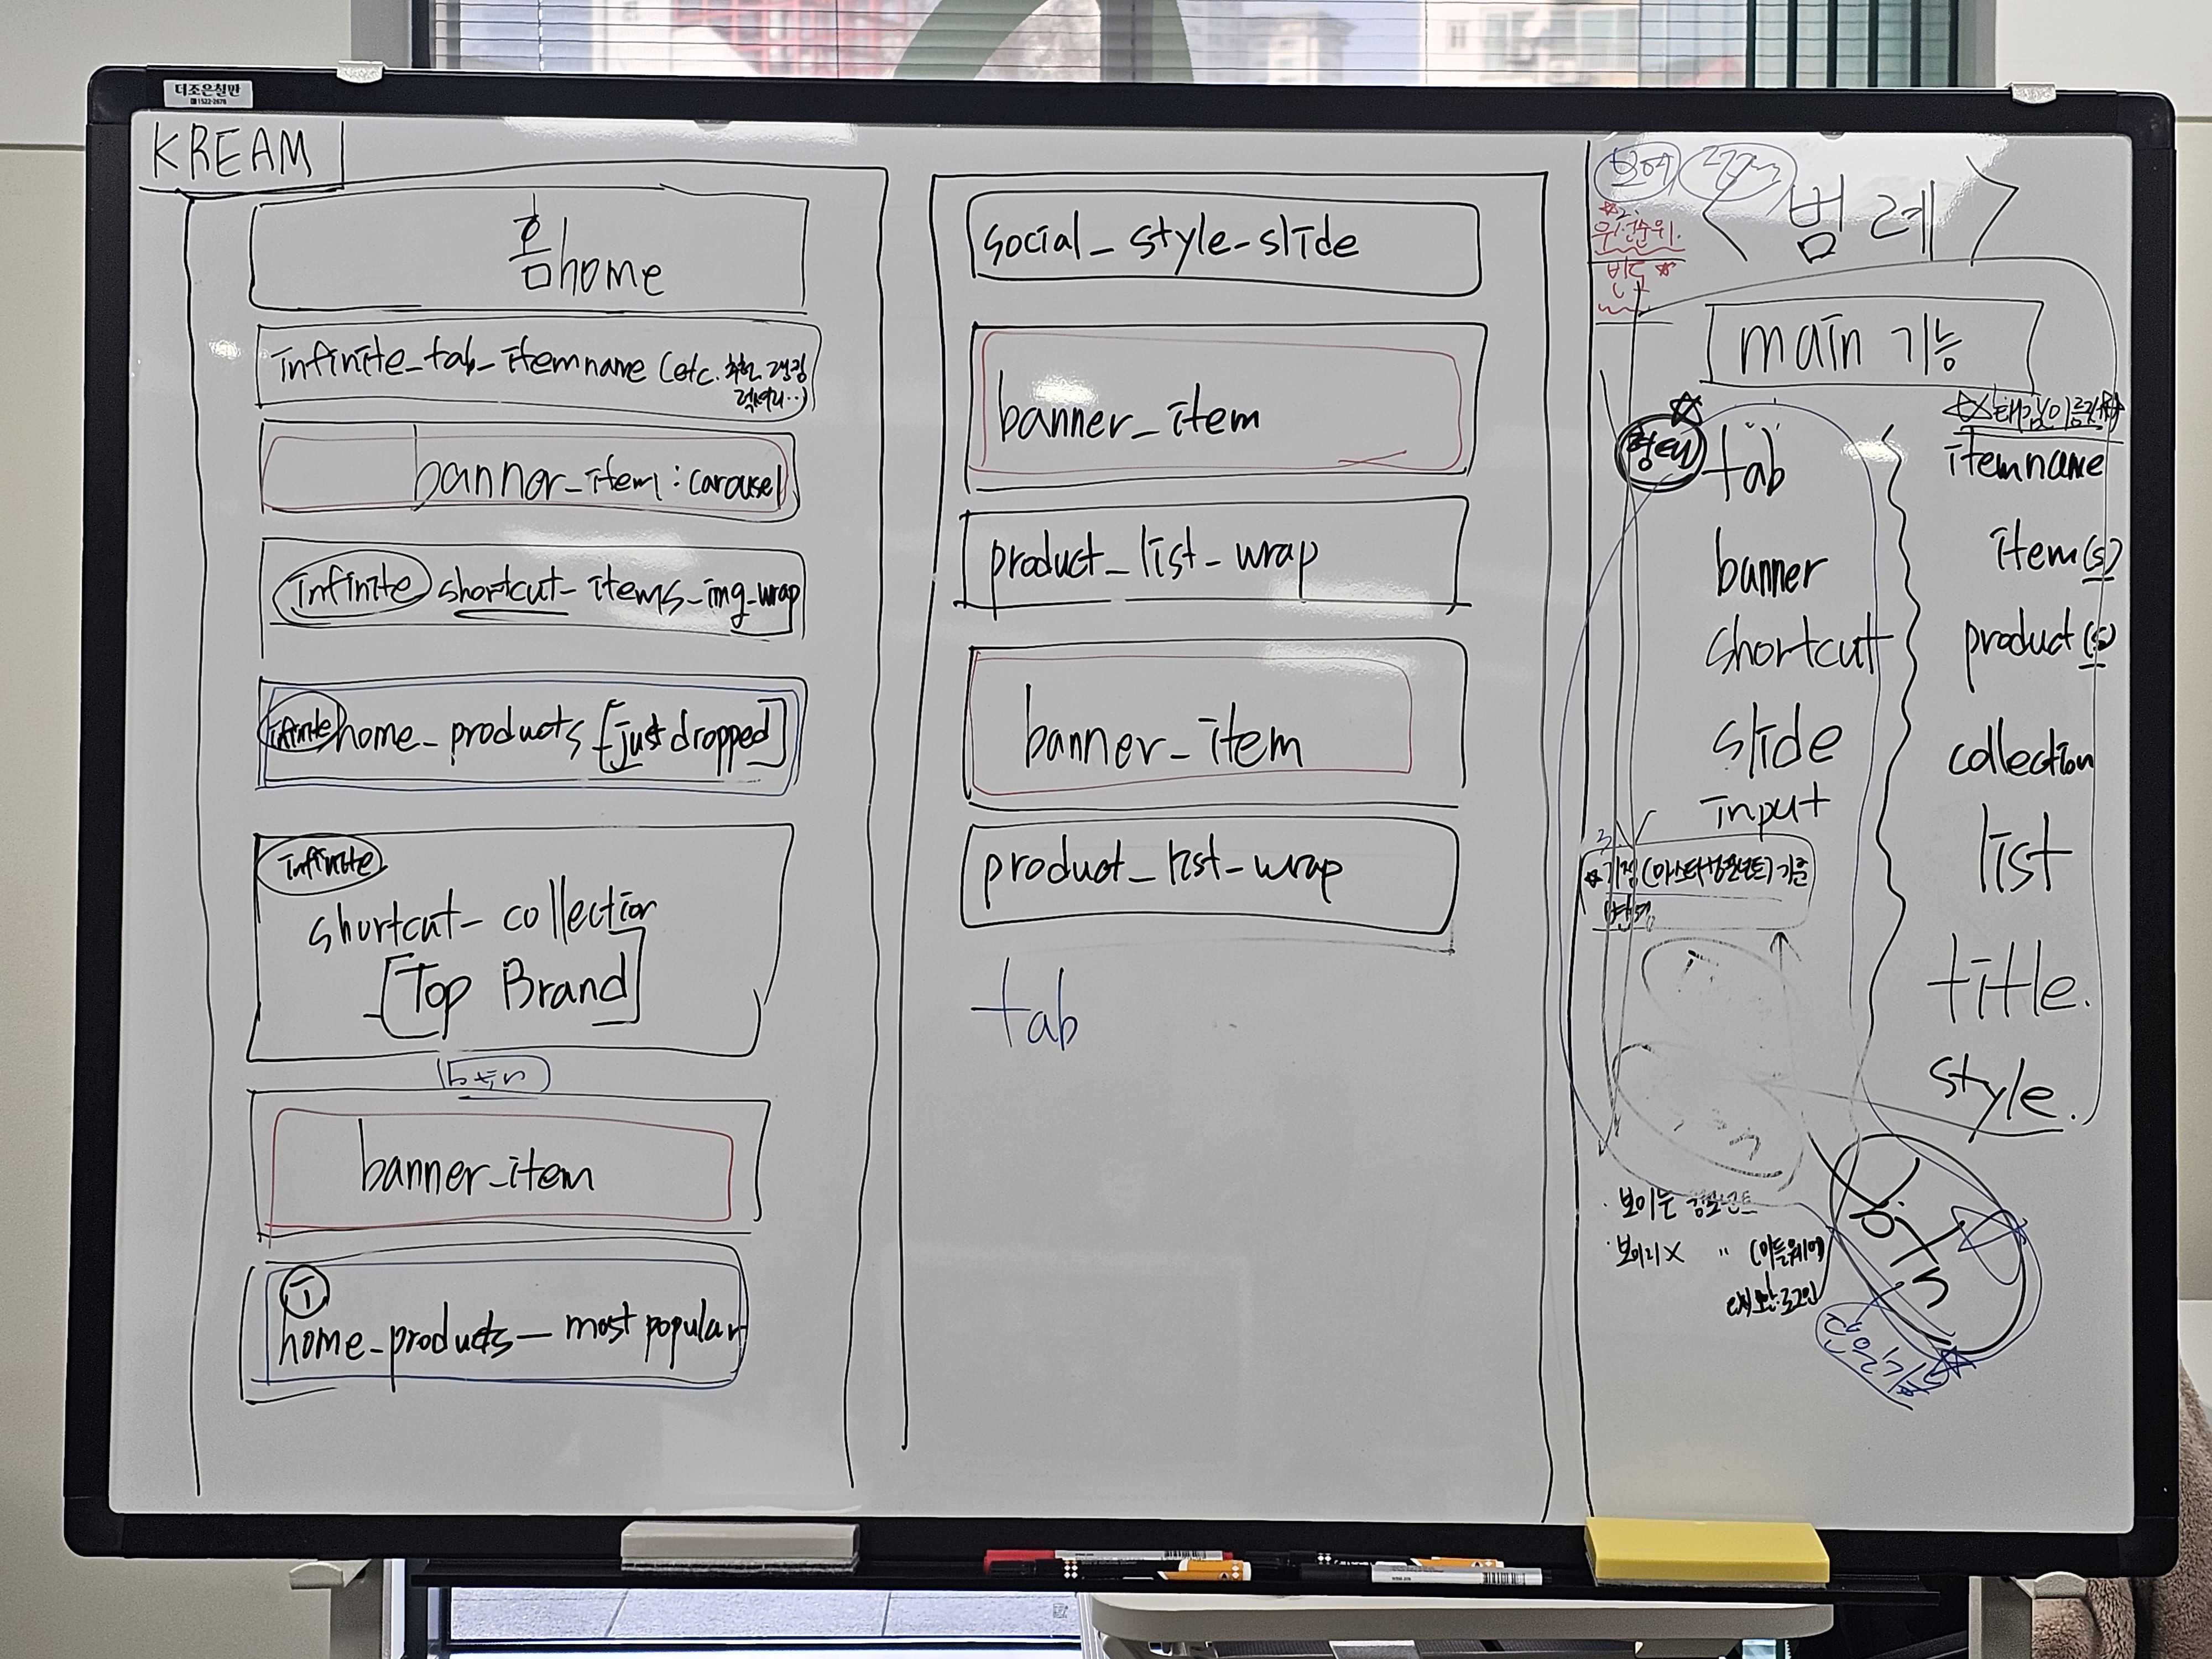 더조은칠판
1522-2678
KREAM
홈 home
infinite_tab_itemname (etc. 추천 랭킹
럭셔리..)
banner_item : carousel
infinite shortcut_items_img_wrap
infinite home_products [just dropped]
infinite
shortcut_collection
[Top Brand]
banner_item
i
home_products_most popular
social_style_slide
banner_item
product_list_wrap
banner_item
product_list_wrap
tab
<범례>
2.
우선순위.
main 기능
형태
tab
banner
shortcut
slide
input
itemname
item(s)
product(s)
collection
list
title.
style.
3
기점 (마스터 컴포넌트) 기준
· 보이는 컴포넌트
· 보이지X " (미들웨어